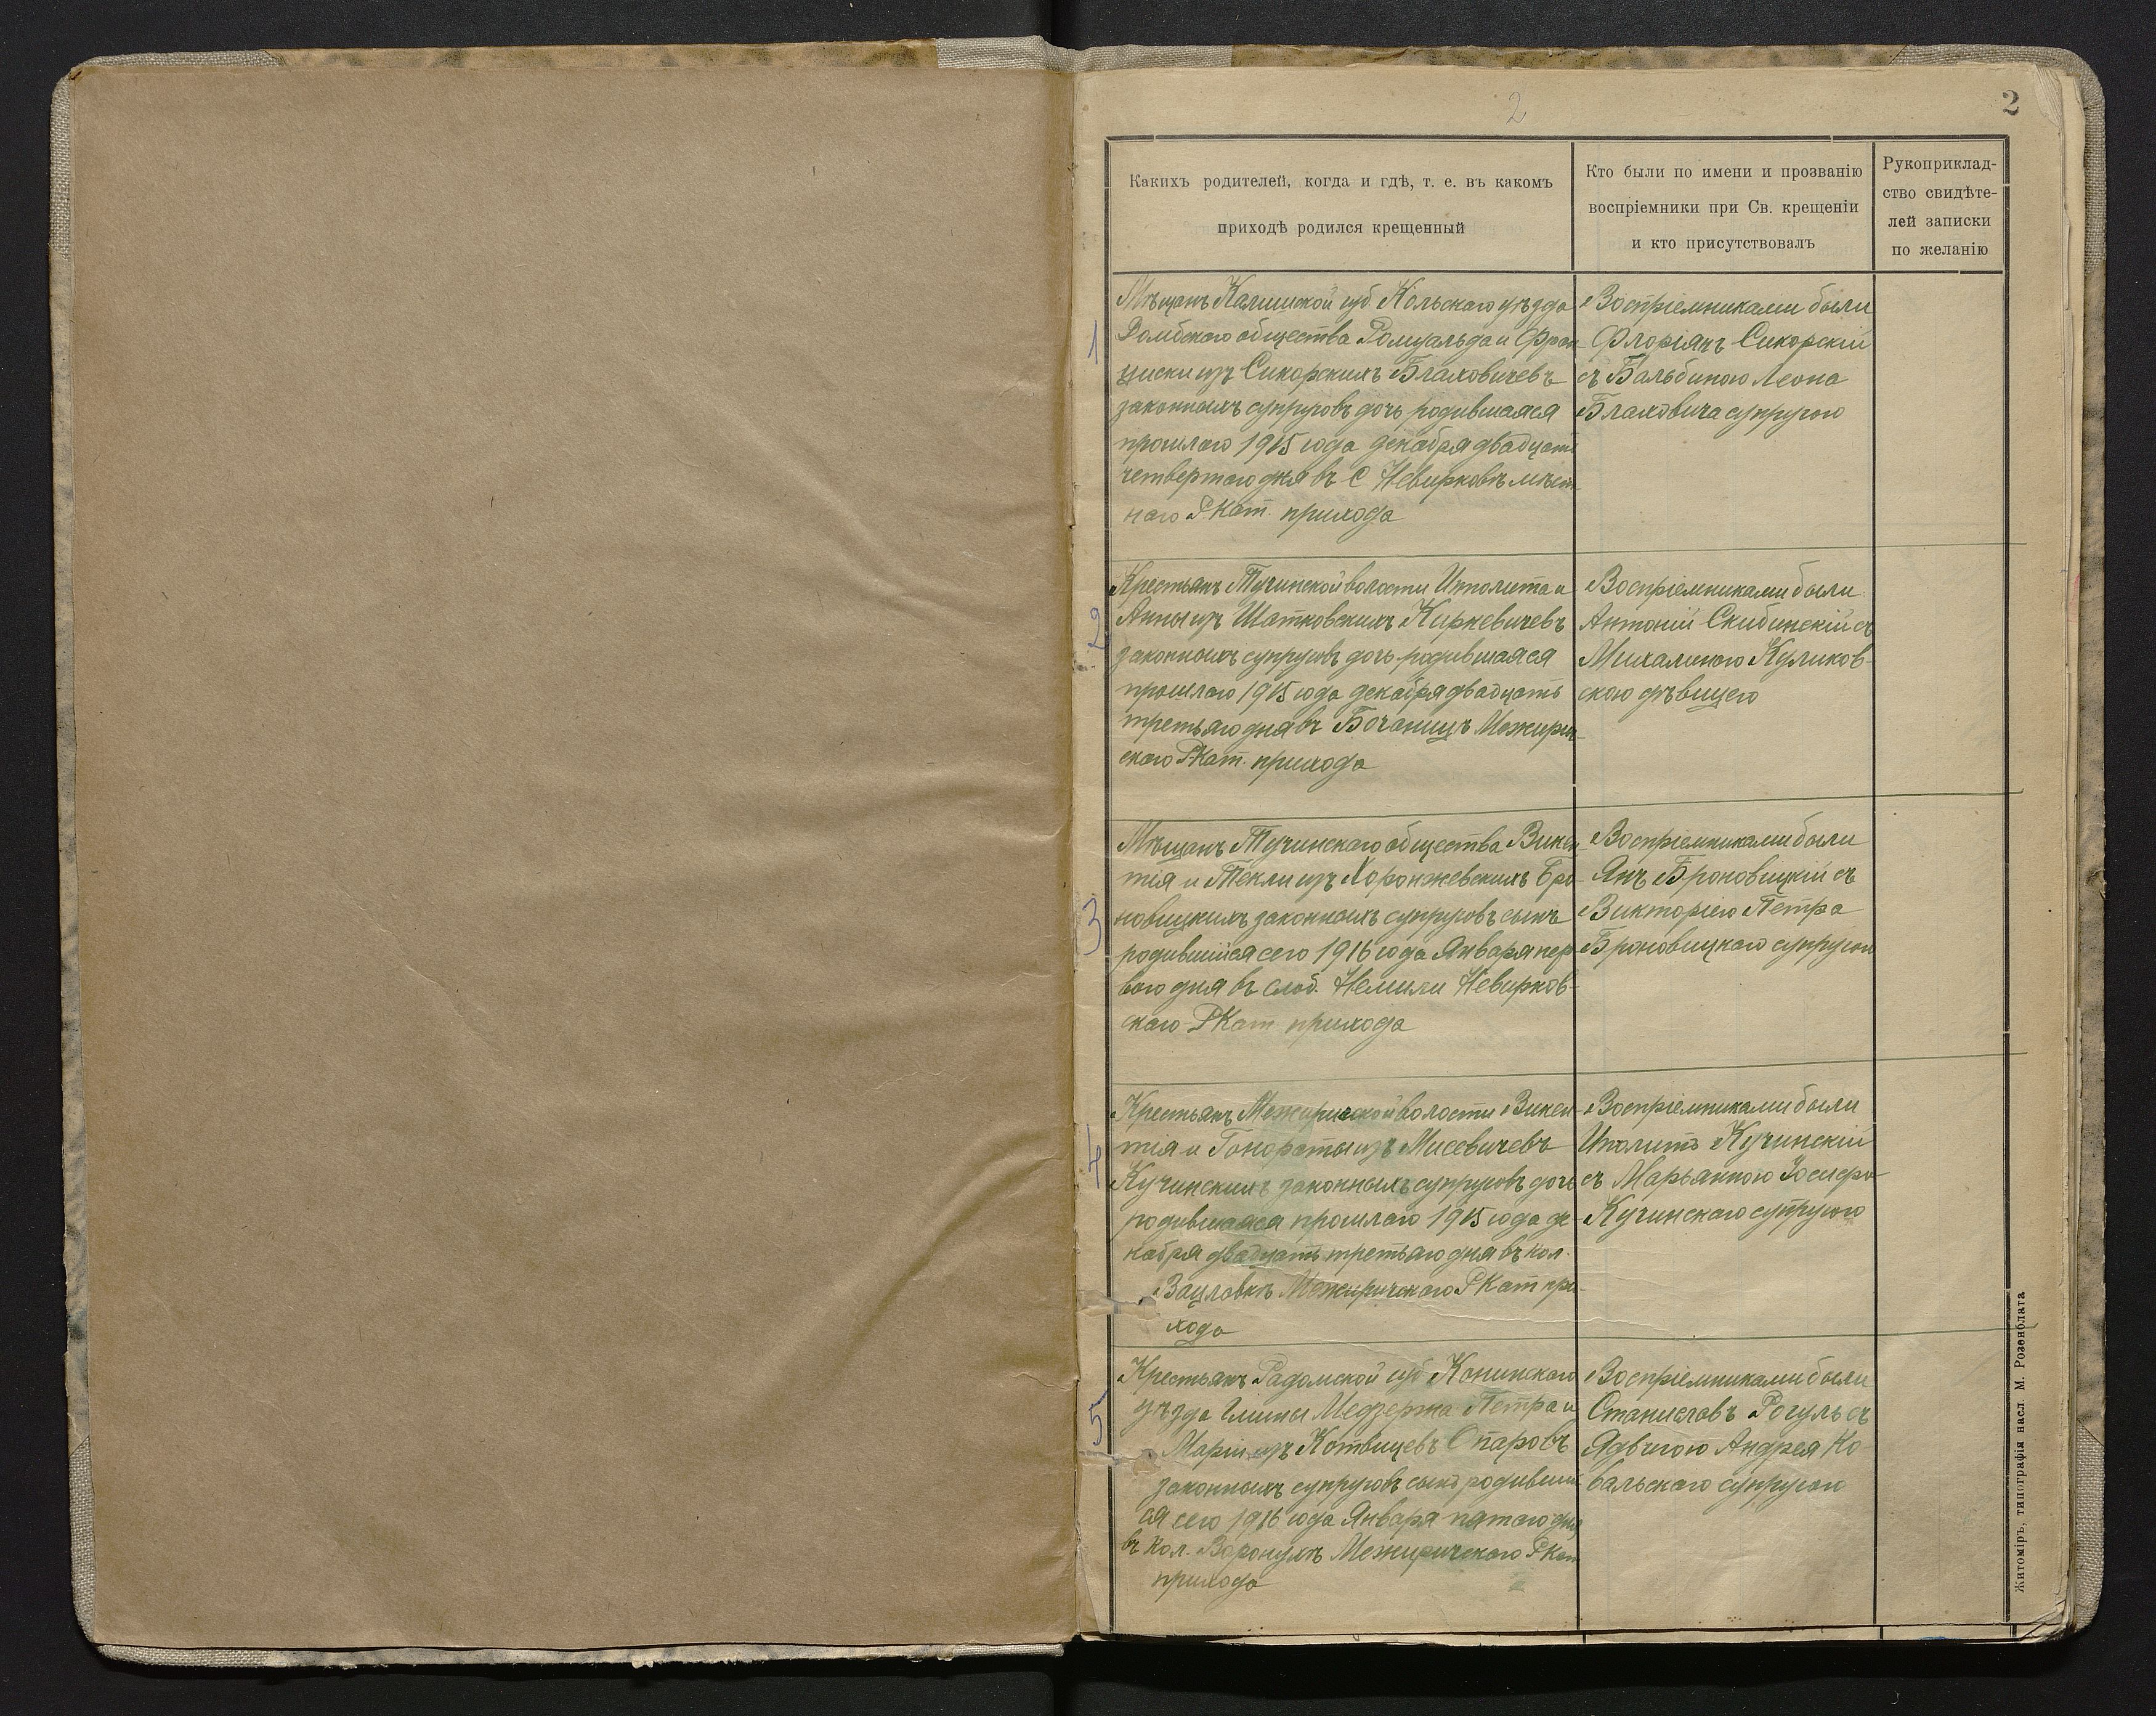 2
2
Какихъ родителей, когда и гдѣ, т. е. въ какомъ
приходѣ родился крещенный
Кто были по имени и прозванію
воспріемники при Св. крещеніи
и кто присутствовалъ
Рукоприклад-
ство свидѣте-
лей записки
по желанію
1
Мѣщанъ Калишской губ. Кольскаго уѣзда
Домбскаго общества Ромуальда и Фран-
циски изъ Сикорскихъ Блаховичевъ
законныхъ супруговъ дочь родившаяся
прошлаго 1915 года декабря двадцать
четвертаго дня въ с Невирковѣ мѣст
наго Р.Кат. прихода
Воспріемниками были
Флоріянъ Сикорскій
съ Бальбиною Леона
Блаховича супругою
2
Крестьянъ Тучинской волости Ипполита и
Анны изъ Шатковскихъ Киркевичевъ
законныхъ супруговъ дочь родившаяся
прошлаго 1915 года декабря двадцать
третьяго дня въ Бочаницѣ Межирич-
скаго Р.Кат. прихода
Воспріемниками были
Антоній Скибинскій съ
Михалиною Куликов-
скою дѣвицею
3
Мѣщанъ Тучинскаго общества Викен-
тія и Текли изъ Хоронжевскихъ Бро-
новицкихъ законныхъ супруговъ сынъ
родившійся сего 1916 года Января пер-
ваго дня въ слоб. Немили Невирков-
скаго Р.Кат прихода
Воспріемниками были
Янъ Броновицкій съ
Викторіею Петра
Броновицкаго супругою
4
Крестьянъ Межиричской волости Викен-
тія и Гонораты изъ Мисевичевъ
Кучинскихъ законныхъ супруговъ дочь
родившаяся прошлаго 1915 года де-
кабря двадцать третьяго дня въ кол.
Вацлавкѣ Межиричскаго Р.Кат при-
хода
Воспріемниками были
Иполитъ Кучинскій
съ Марьянною Іосифа
Кучинскаго супругою
5
Крестьянъ Радомской губ Конинскаго
уѣзда Гмины Медзержа Петра и
Маріи изъ Котвицевъ Опаровъ
законныхъ супруговъ сынъ родившій
ся сего 1916 года Января пятаго дня
въ кол. Воронухѣ Межиричскаго Р.Кат
прихода
Воспріемниками были
Станиславъ Рогуль съ
Ядвигою Андрея Ко-
вальскаго супругою
Житоміръ, типографія насл. М. Розенблата